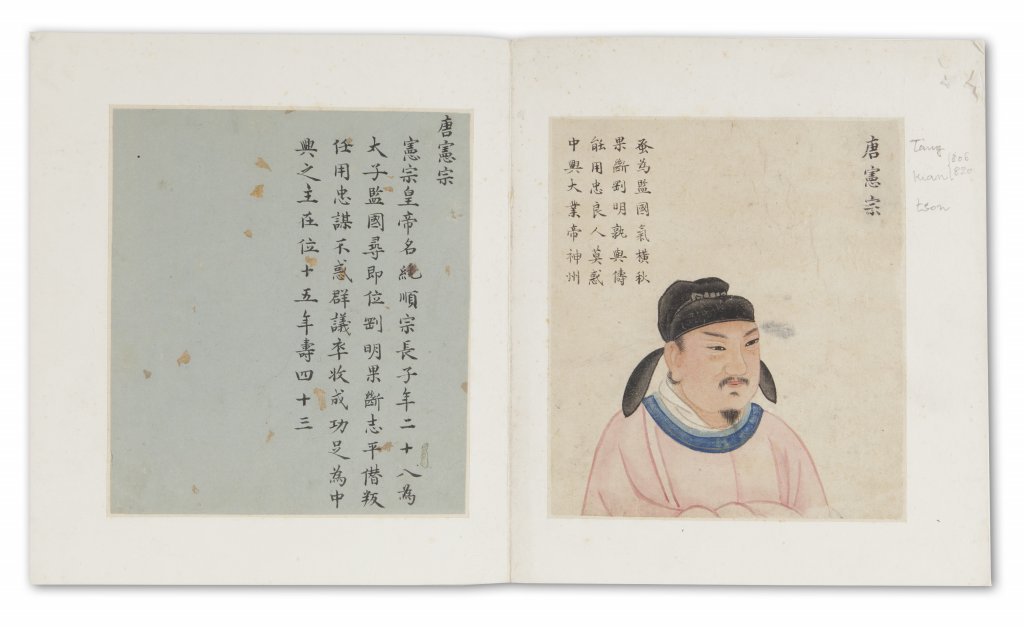 Tang
hian
tson
806
820
唐憲宗
蚤為監國氣橫秋
果斷剛明孰與儔
能用忠良人莫惑
中興大業帝神州
唐憲宗
憲宗皇帝名純順宗長子年二十八為
太子監國尋即位剛明果斷志平僭叛
任用忠謀不惑群議卒收成功足為中
興之主在位十五年壽四十三